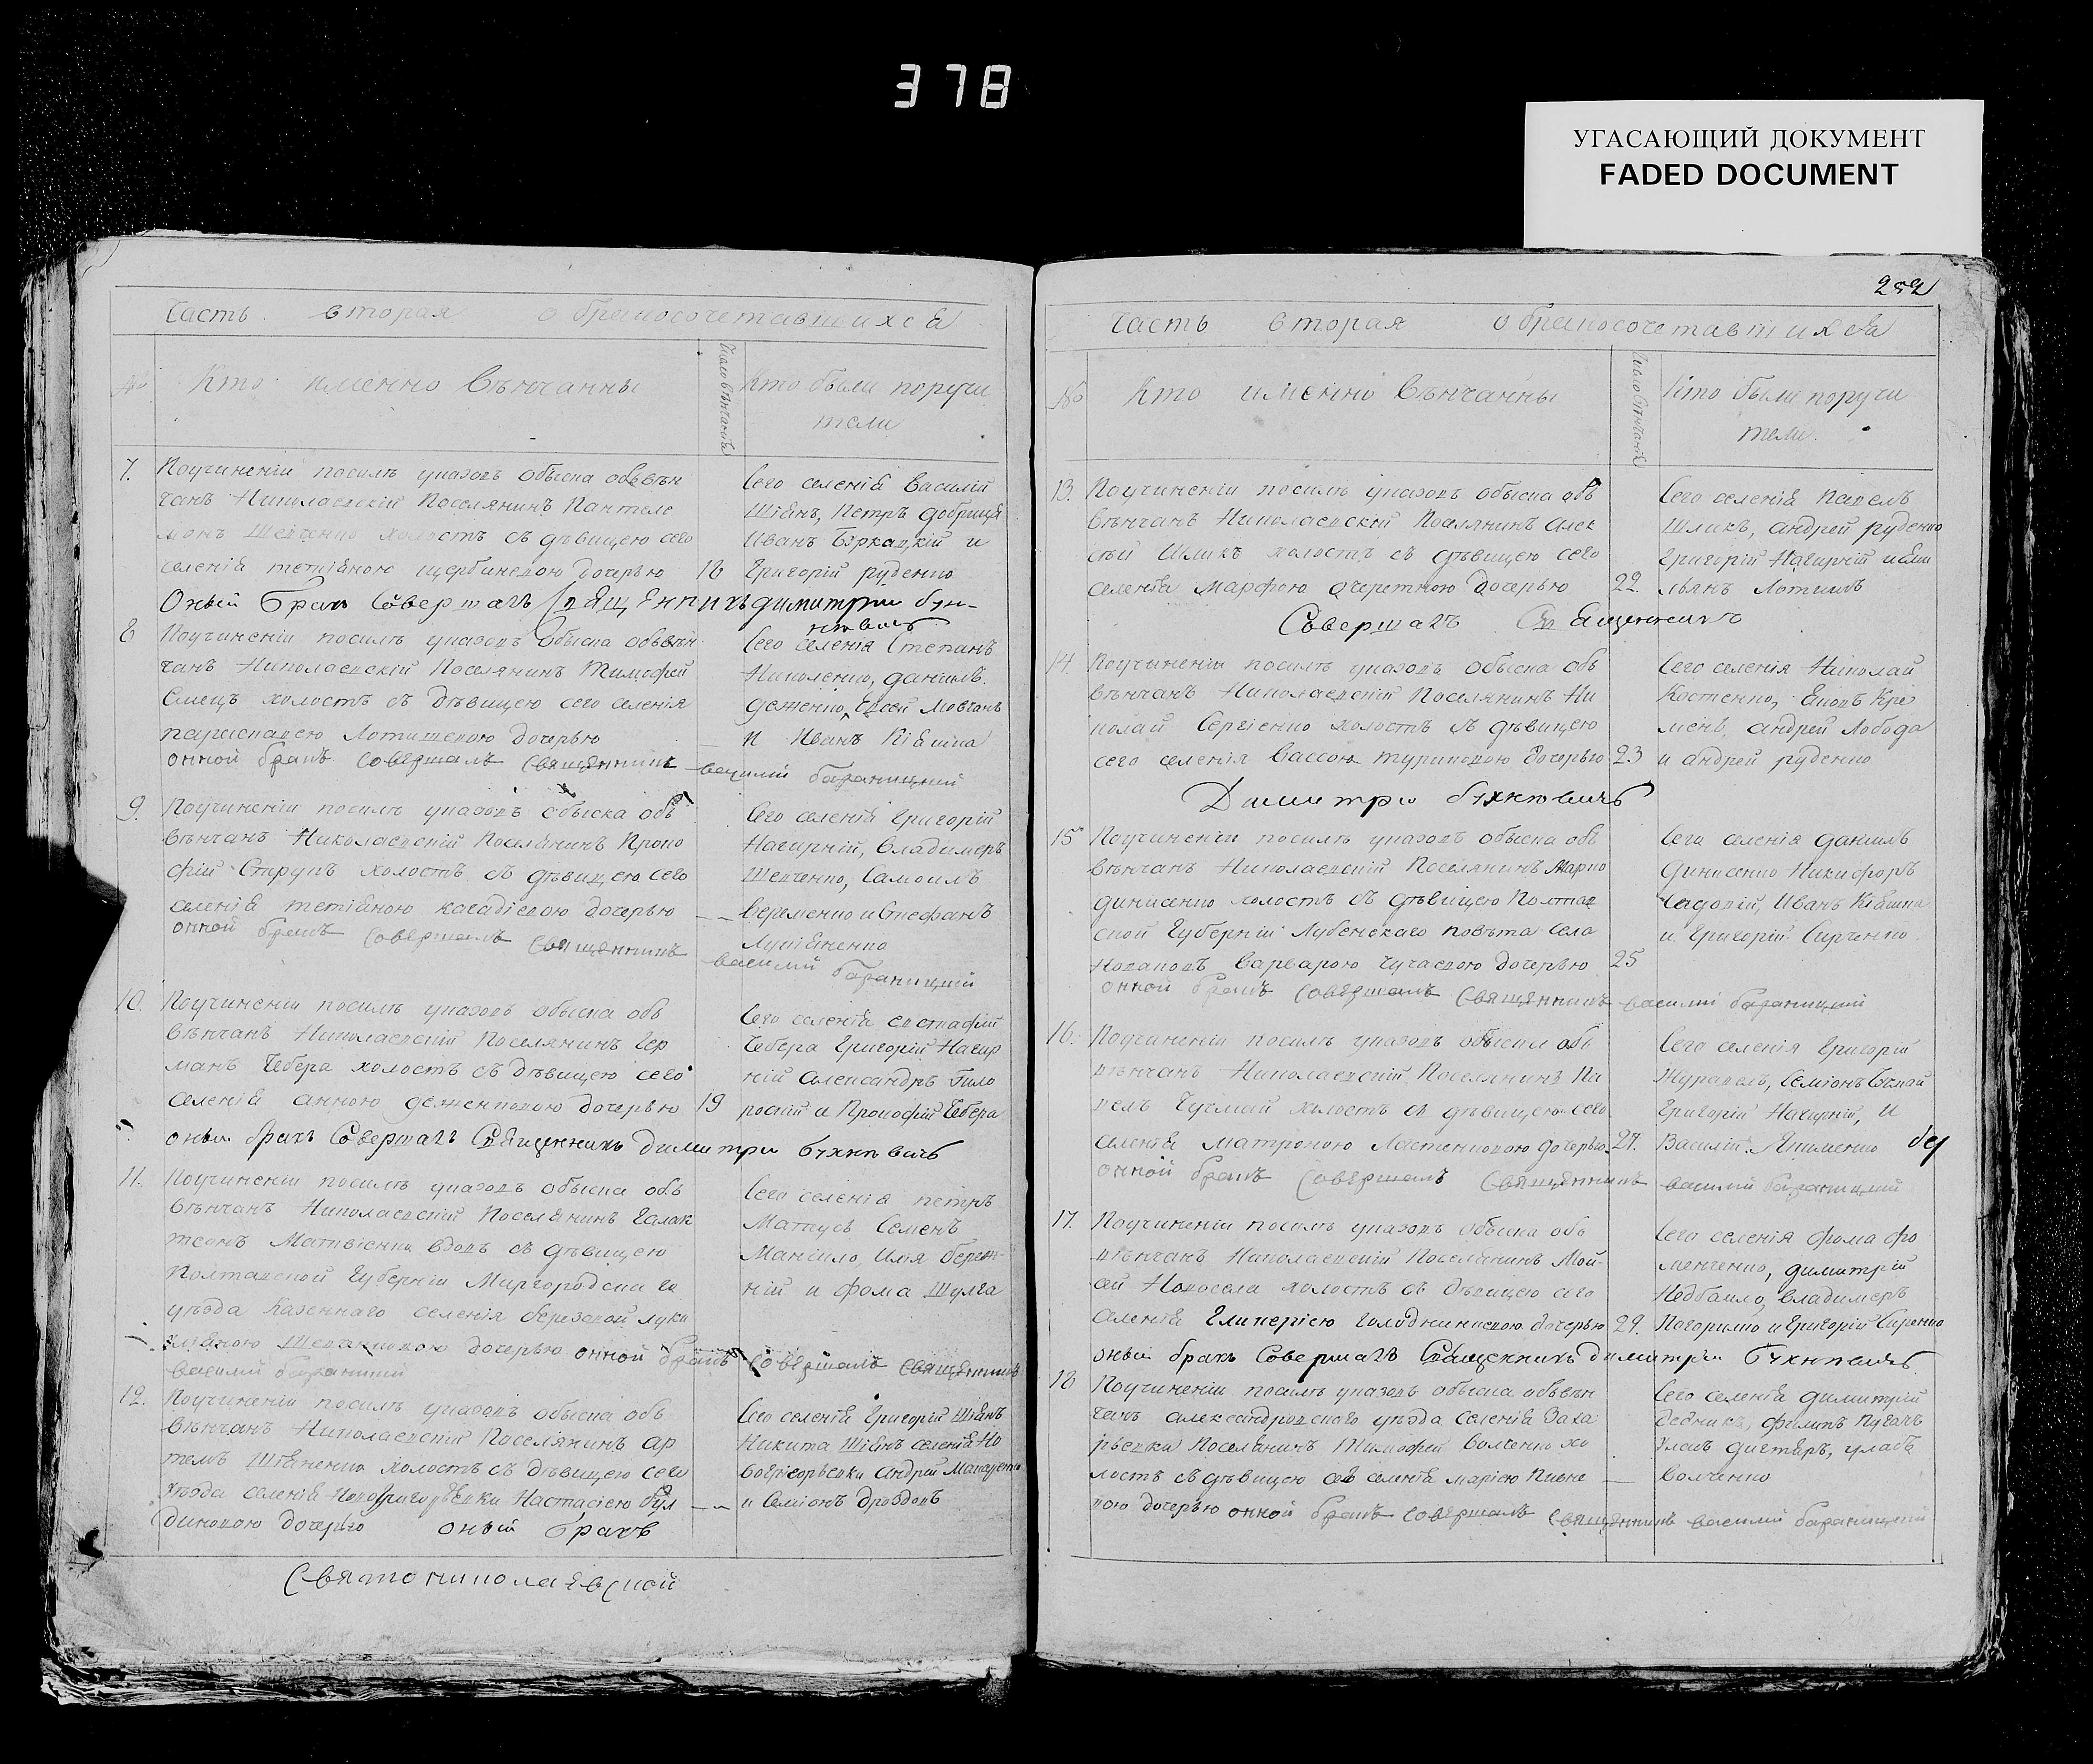 378
УГАСАЮЩИЙ ДОКУМЕНТ
FADED DOCUMENT
Часть вторая о бракосочетавшихся
№ Кто именно вѣнчанны
Число вѣнчанія
Кто были поручи
тели
7. Поучиненіи посилѣ указовъ обыска обвѣн
чанъ Николаевскій Поселянинъ Пантеле
монъ Шевченко холостъ съ дѣвицею сего
селенія Тетіяною Щербиневою дочерью 18
Сего селенія Василій
Шіянъ, Петръ Добриця
Иванъ и
Григорій Руденко
Оный бракъ Совершалъ Священникъ Димитри Бух-
невичъ
8 Поучиненіи посилѣ указовъ обыска обвѣн
чанъ Николаевскій Поселянинъ Тимофей
Емецъ холостъ съ дѣвицею сего селенія
Параскевею дочерью —
Сего селенія Степанъ
Николенко, Данилъ
Деженко, Евсей Мовчанъ
и Иванъ Кіяшка
онной бракъ совершалъ священникъ василий бараницкий
9. Поучиненіи посилѣ указовъ обыска объ
вѣнчанъ Николаевскій Поселянинъ Проко
фій Струкъ холостъ съ дѣвицею сего
селенія Тетіяною дочерью — —
Сего селенія Григорій
Нагирній, Владимеръ
Шевченко, Самоилъ
Веременко и Стефанъ
Лукіяненко
онной бракъ совершалъ священникъ
василий бараницкий
10. Поучиненіи посилѣ указовъ обыска объ
вѣнчанъ Николаевскій Поселянинъ Гер
манъ Чебера холостъ съ дѣвицею сего
селенія Анною Деженковою дочерью 19
Сего селенія Евстафій
Чебера Григорій Нагир
ній Александръ
и Прокофій Чебера
оный бракъ Совершалъ Священникъ Димитри Бухневичъ
11. Поучиненіи посилѣ указовъ обыска объ
вѣнчанъ Николаевскій Поселянинъ Галак
тіонъ Матвіенко вдовъ съ дѣвицею
Полтавской Губерніи Миргородскаго
уѣзда Казеннаго селенія Березовой луки
Шевченковою дочерью онной бракъ совершалъ священникъ
василий бараницкий
Сего селенія Петръ
Матусъ Семенъ
Манжило, Илія
ній и Фома Шулга
12. Поучиненіи посилѣ указовъ обыска объ
вѣнчанъ Николаевскій Поселянинъ Ар
темъ Шіяненко холостъ съ дѣвицею сего
уѣзда селенія Новогригорьевки Настасіею Бул
диновою дочерью оный бракъ
Сего селенія Григорій Шіянъ
Никита Шіянъ селенія Но
вогригорьевки Андрей Макаренко
и Семіонъ Дроздовъ
Святониколаевской
252
Часть вторая о бракосочетавшихся
№ Кто именно вѣнчанны
Число вѣнчанія
Кто были поручи
тели
13. Поучиненіи посилѣ указовъ обыска объ
вѣнчанъ Николаевскій Поселянинъ Алек
сѣй Шликъ холостъ съ дѣвицею сего
селенія Марфою Очеретною дочерью 22.
Сего селенія Павелъ
Шликъ, Андрей Руденко
Григорій Нагирній и Ем
льянъ
Совершалъ Священникъ
14. Поучиненіи посилѣ указовъ обыска объ
вѣнчанъ Николаевскій Поселянинъ Ни
колай Сергіенко холостъ съ дѣвицею
сего селенія Вассою Туриковою дочерью 23
Сего селенія Николай
Костенко, Кре
мень, Андрей Лобода
и Андрей Руденко
Димитри Бухневичъ
15 Поучиненіи посилѣ указовъ обыска объ
вѣнчанъ Николаевскій Поселянинъ Марко
Динисенко холостъ съ дѣвицею Полтав
ской Губерніи Лубенскаго повѣта села
Варварою дочерью 25
Сего селенія Данилъ
Динисенко Никифоръ
Иванъ Кіяшка
и Григорій Сиренко
онной бракъ совершалъ священникъ василий бараницкий
16. Поучиненіи посилѣ указовъ обыска объ
вѣнчанъ Николаевскій Поселянинъ Па
велъ холостъ съ дѣвицею сего
селенія Матроною дочерью 27.
Сего селенія Григорій
Журавель, Семіонъ
Григорій Нагирній, и
Василій Якименко
онной бракъ совершалъ священникъ василий бараницкий
17. Поучиненіи посилѣ указовъ обыска объ
вѣнчанъ Николаевскій Поселянинъ Мой-
сей Новосела холостъ съ дѣвицею сего
селенія Гликеріею дочерью 29.
Сего селенія Фома Фо
менченко, Димитрій
Недбаило, Владимеръ
Погорилко и Григорій Сиренко
оный бракъ Совершалъ Священникъ Димитри Бухневичъ
18 Поучиненіи посилѣ указовъ обыска обвѣн
чанъ Александровскаго уѣзда селенія Заха
рьевки Поселянинъ Тимофей Волченко хо
лостъ съ дѣвицею сего селенія Маріею
вою дочерью онной бракъ совершалъ священникъ василий бараницкий
Сего селенія Димитрій
Филипъ Пугачъ
Власъ
Волченко